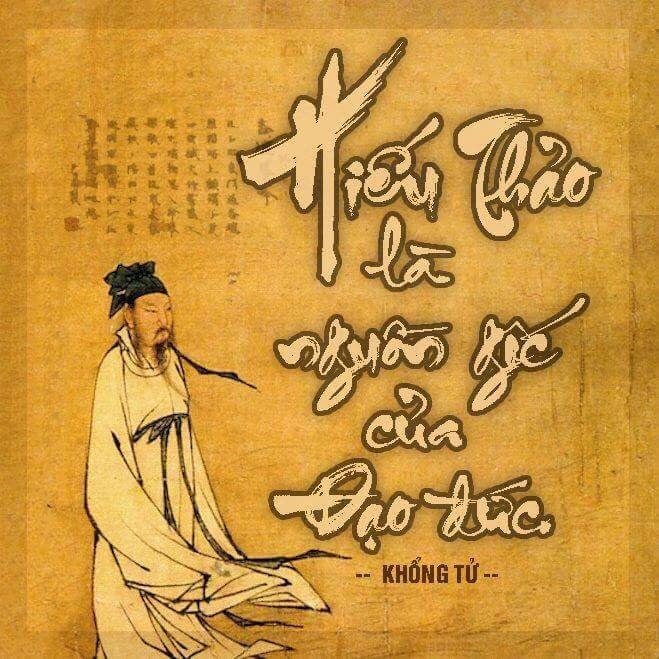 Hiếu Thảo
là
nguồn gốc
của
Đạo đức.
-- KHỔNG TỬ --